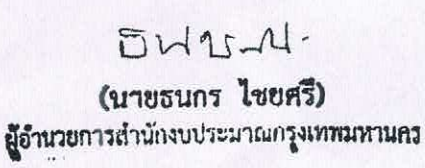 (นายธนกร ไชยศรี)
ผู้อำนวยการสำนักงบประมาณกรุงเทพมหานคร